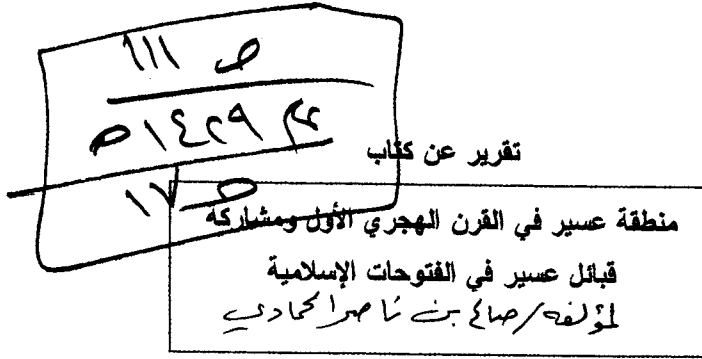 ص ١١١
م ١٤٢٩ ه
ص ١٧
تقرير عن كتاب
منطقة عسير في القرن الهجري الأول ومشاركة
قبائل عسير في الفتوحات الإسلامية
لمؤلفه/صالح بن ناصر الحمادي